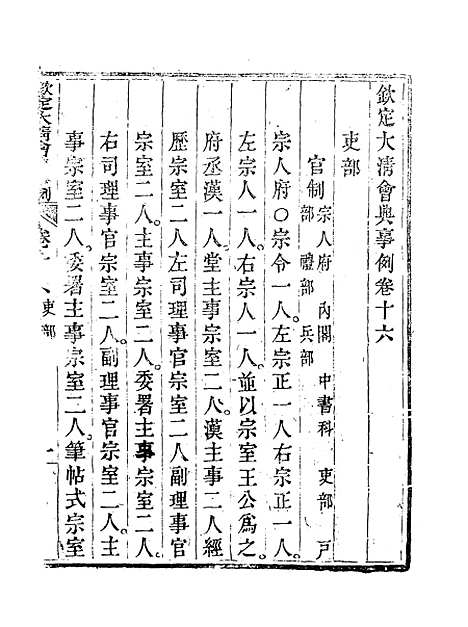 欽定大清會典事例卷十六
吏部
官制宗人府 內閣 中書科 吏部 戶
部 禮部 兵部
宗人府○宗令一人。左宗正一人右宗正一人。
左宗人一人。右宗人一人。並以宗室王公爲之。
府丞漢一人。堂主事宗室二人。漢主事二人經
歷宗室二人左司理事官宗室二人副理事官
宗室二人。主事宗室二人。委署主事宗室二人。
右司理事官宗室二人。副理事官宗室二人。主
事宗室二人。委署主事宗室二人。筆帖式宗室
欽定大清會 例 卷十六 吏部 一